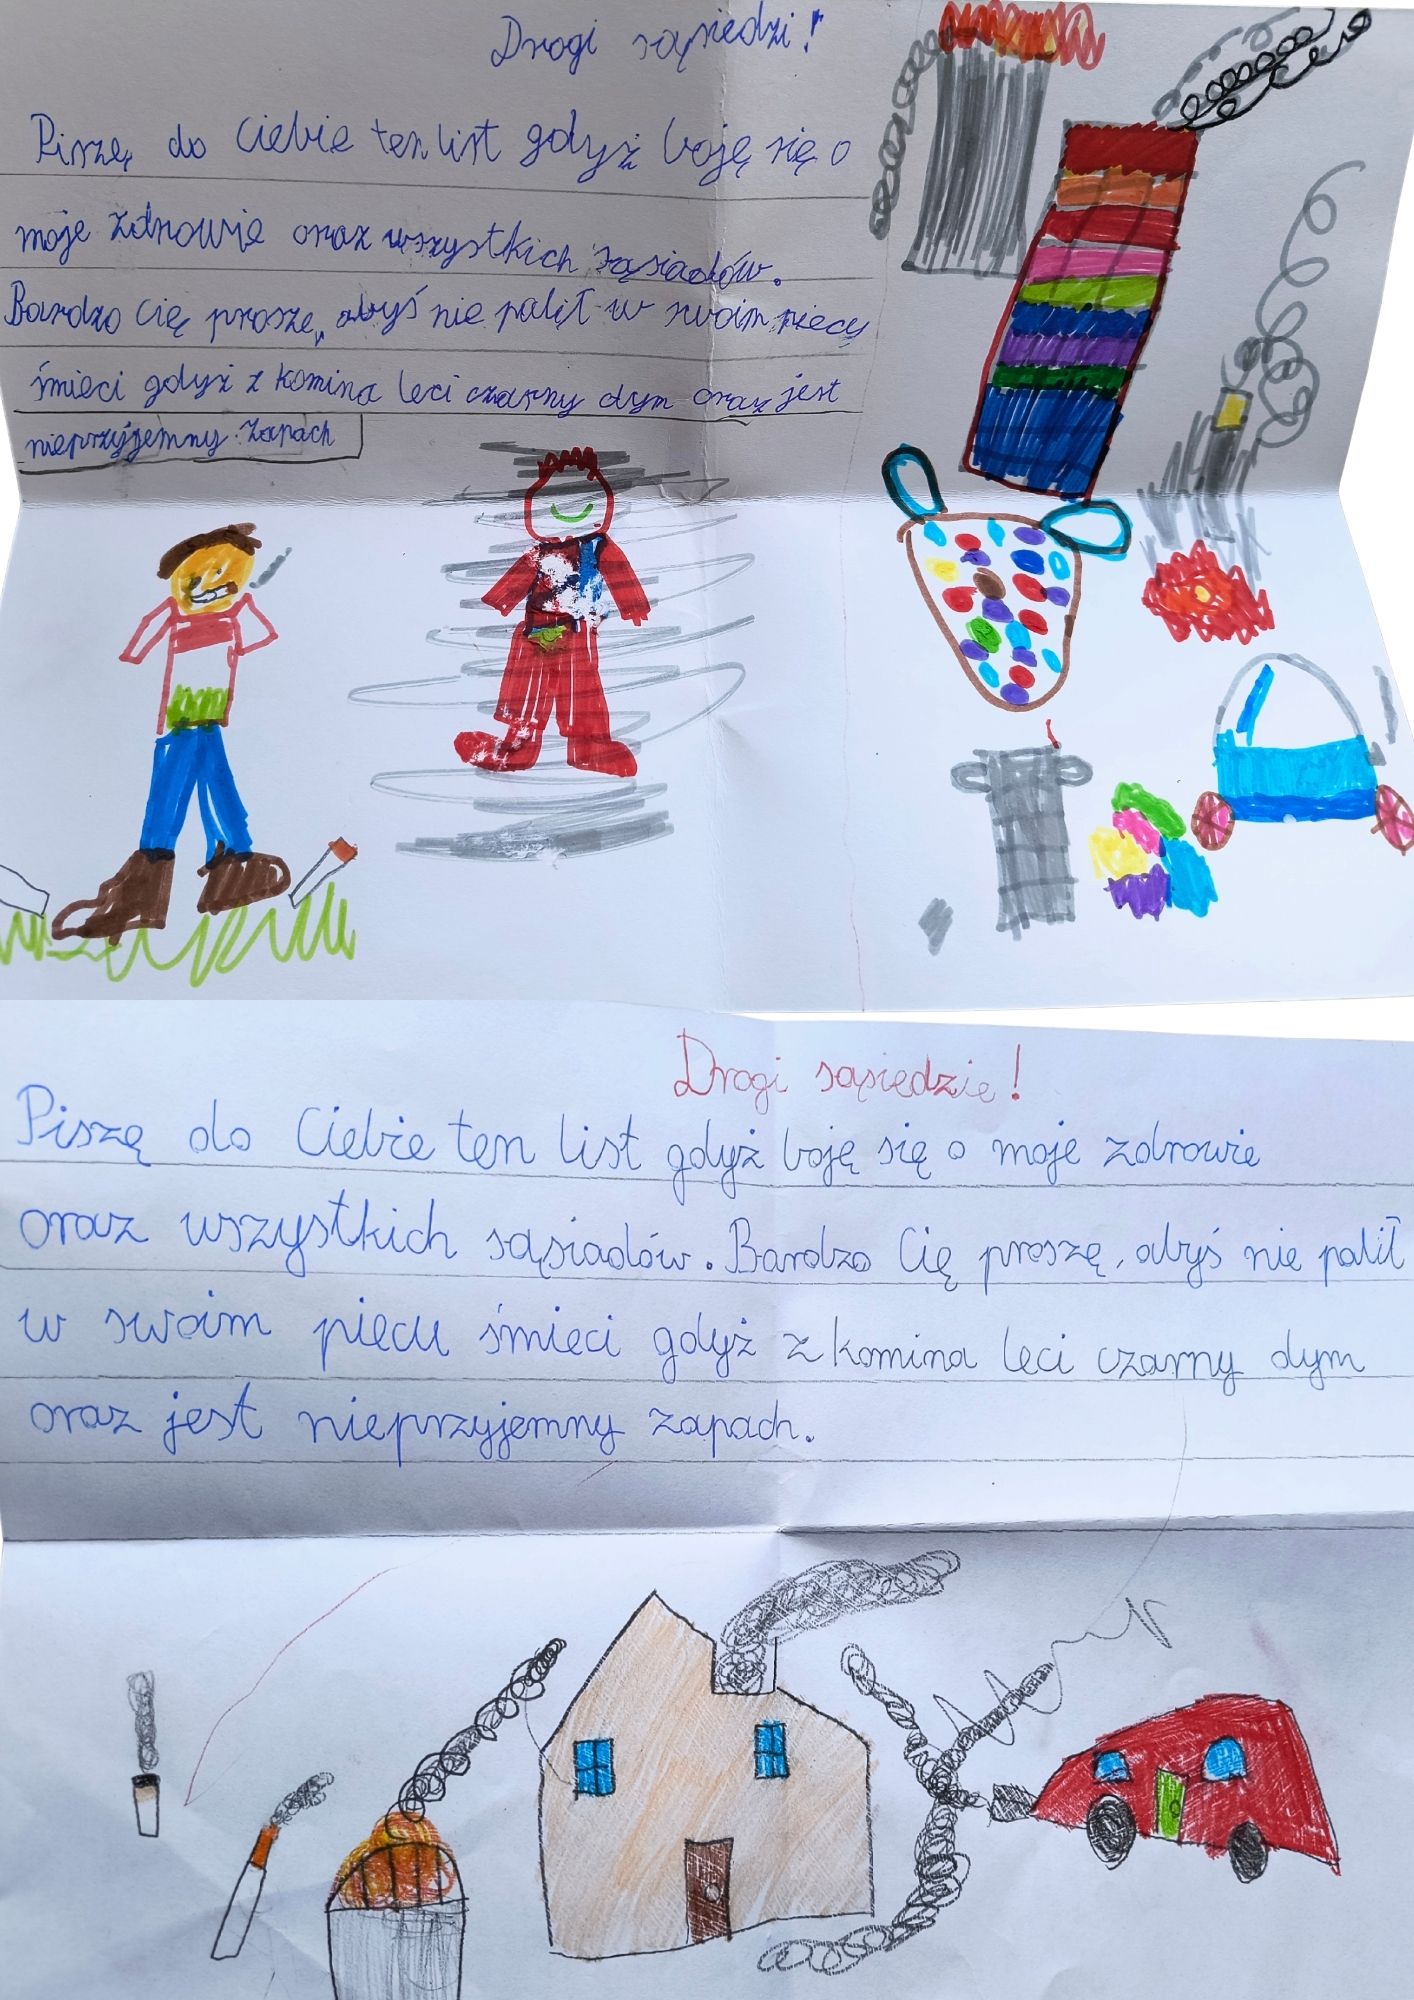 Drogi sąsiedzi!
Piszę do Ciebie ten list gdyż boję się o
moje zdrowie oraz wszystkich sąsiadów.
Bardzo Cię proszę, abyś nie palił w swoim piecu
śmieci gdyż z komina leci czarny dym oraz jest
nieprzyjemny zapach
Drogi sąsiedzie!
Piszę do Ciebie ten list gdyż boję się o moje zdrowie
oraz wszystkich sąsiadów. Bardzo Cię proszę, abyś nie palił
w swoim piecu śmieci gdyż z komina leci czarny dym
oraz jest nieprzyjemny zapach.